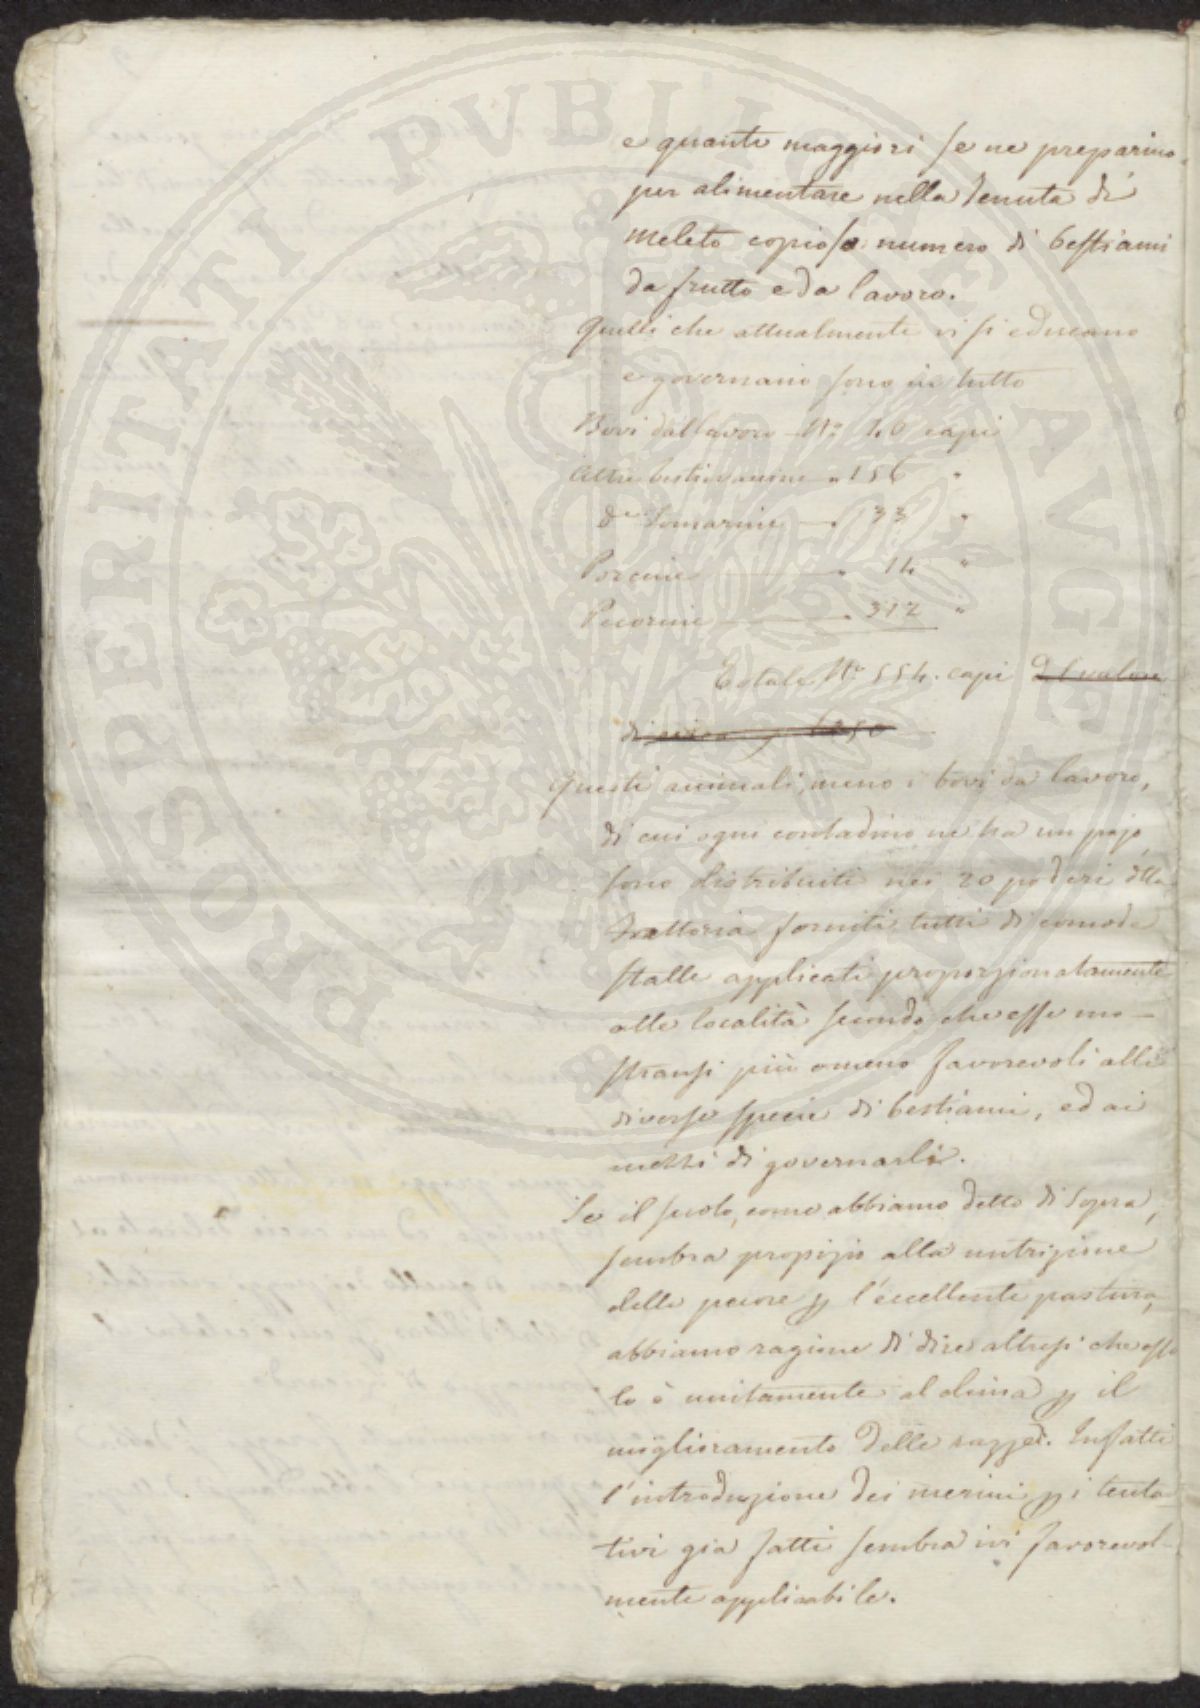 PROSPERITATI PVBLICAE AVGENDAE
e quanti maggiori se ne preparino
per alimentare nella Tenuta di
Meleto copioso numero di bestiami
da frutto e da lavoro.
Quelli che attualmente vi si educano
e governano sono in tutto
Bovi da lavoro N.o 40 capi
Altre bestie vaccine " 156 "
d.e Somarine " 33 "
Porcine " 14 "
Pecorine " 312 "
Totale N.o 554. capi Del valore
di circa
Questi animali, meno i bovi da lavoro,
di cui ogni contadino ne ha un pajo
sono distribuiti nei 20 poderi d'lla
Fattoria forniti tutti di comode
stalle applicati proporzionatamente
alle località secondo che esse mo-
stransi più o meno favorevoli alle
diverse specie di bestiami, ed ai
mezzi di governarli.
Se il suolo, come abbiamo detto di sopra,
sembra propizio alla nutrizione
delle pecore p l'eccellente pastura,
abbiamo ragione di dire altresì che esso
lo è unitamente al clima p il
miglioramento delle razze. Infatti
l'introduzione dei merini p i tenta
tivi gia fatti sembra ivi favorevol-
mente applicabile.